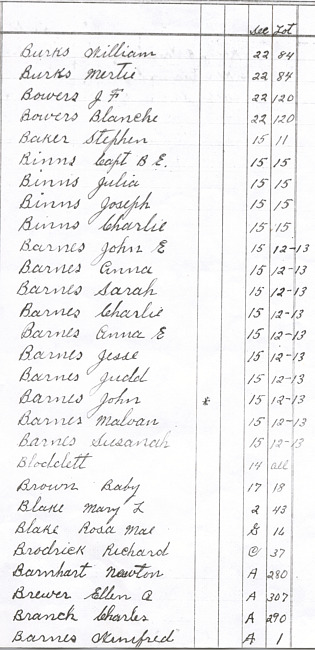 Sec Lot
Burks William 22 84
Burks Mertie 22 84
Bowers J F 22 120
Bowers Blanche 22 120
Baker Stephen 15 11
Binns Capt B E. 15 15
Binns Julia 15 15
Binns Joseph 15 15
Binns Charlie 15 15
Barnes John E 15 12-13
Barnes Anna 15 12-13
Barnes Sarah 15 12-13
Barnes Charlie 15 12-13
Barnes Anna E 15 12-13
Barnes Jesse 15 12-13
Barnes Judd 15 12-13
Barnes John * 15 12-13
Barnes Malvan 15 12-13
Barnes Susanah 15 12-13
Blodclett 14 all
Brown Baby 17 18
Blake Mary L 2 43
Blake Rosa Mae G 16
Brodrick Richard C 37
Barnhart Newton A 280
Brewer Ellen A A 307
Branch Charles A 290
Barnes Winifred A 1